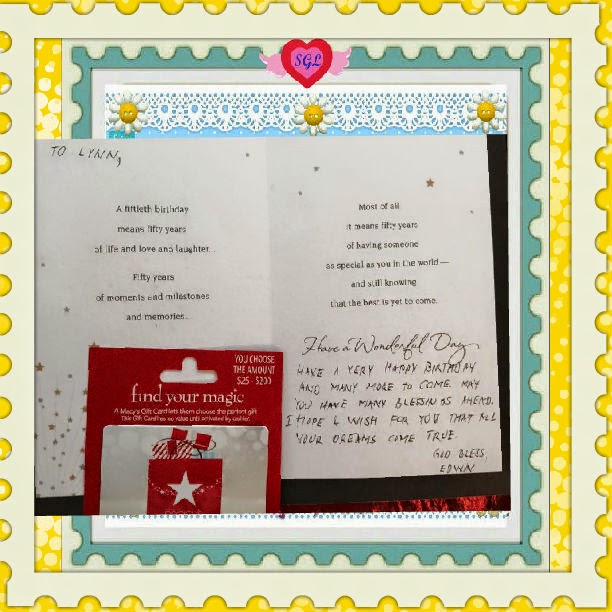 SGL
TO LYNN,
A fiftieth birthday
means fifty years
of life and love and laughter...
Fifty years
of moments and milestones
and memories...
Most of all,
it means fifty years
of having someone
as special as you in the world—
and still knowing
that the best is yet to come.
Have a Wonderful Day
HAVE A VERY HAPPY BIRTHDAY
AND MANY MORE TO COME. MAY
YOU HAVE MANY BLESSINGS AHEAD.
I HOPE & WISH FOR YOU THAT ALL
YOUR DREAMS COME TRUE.
GOD BLESS,
EDWIN
YOU CHOOSE
THE AMOUNT
$25 - $200
find your magic
A Macy's Gift Card lets them choose the perfect gift
This Gift Card has no value until activated by cashier.